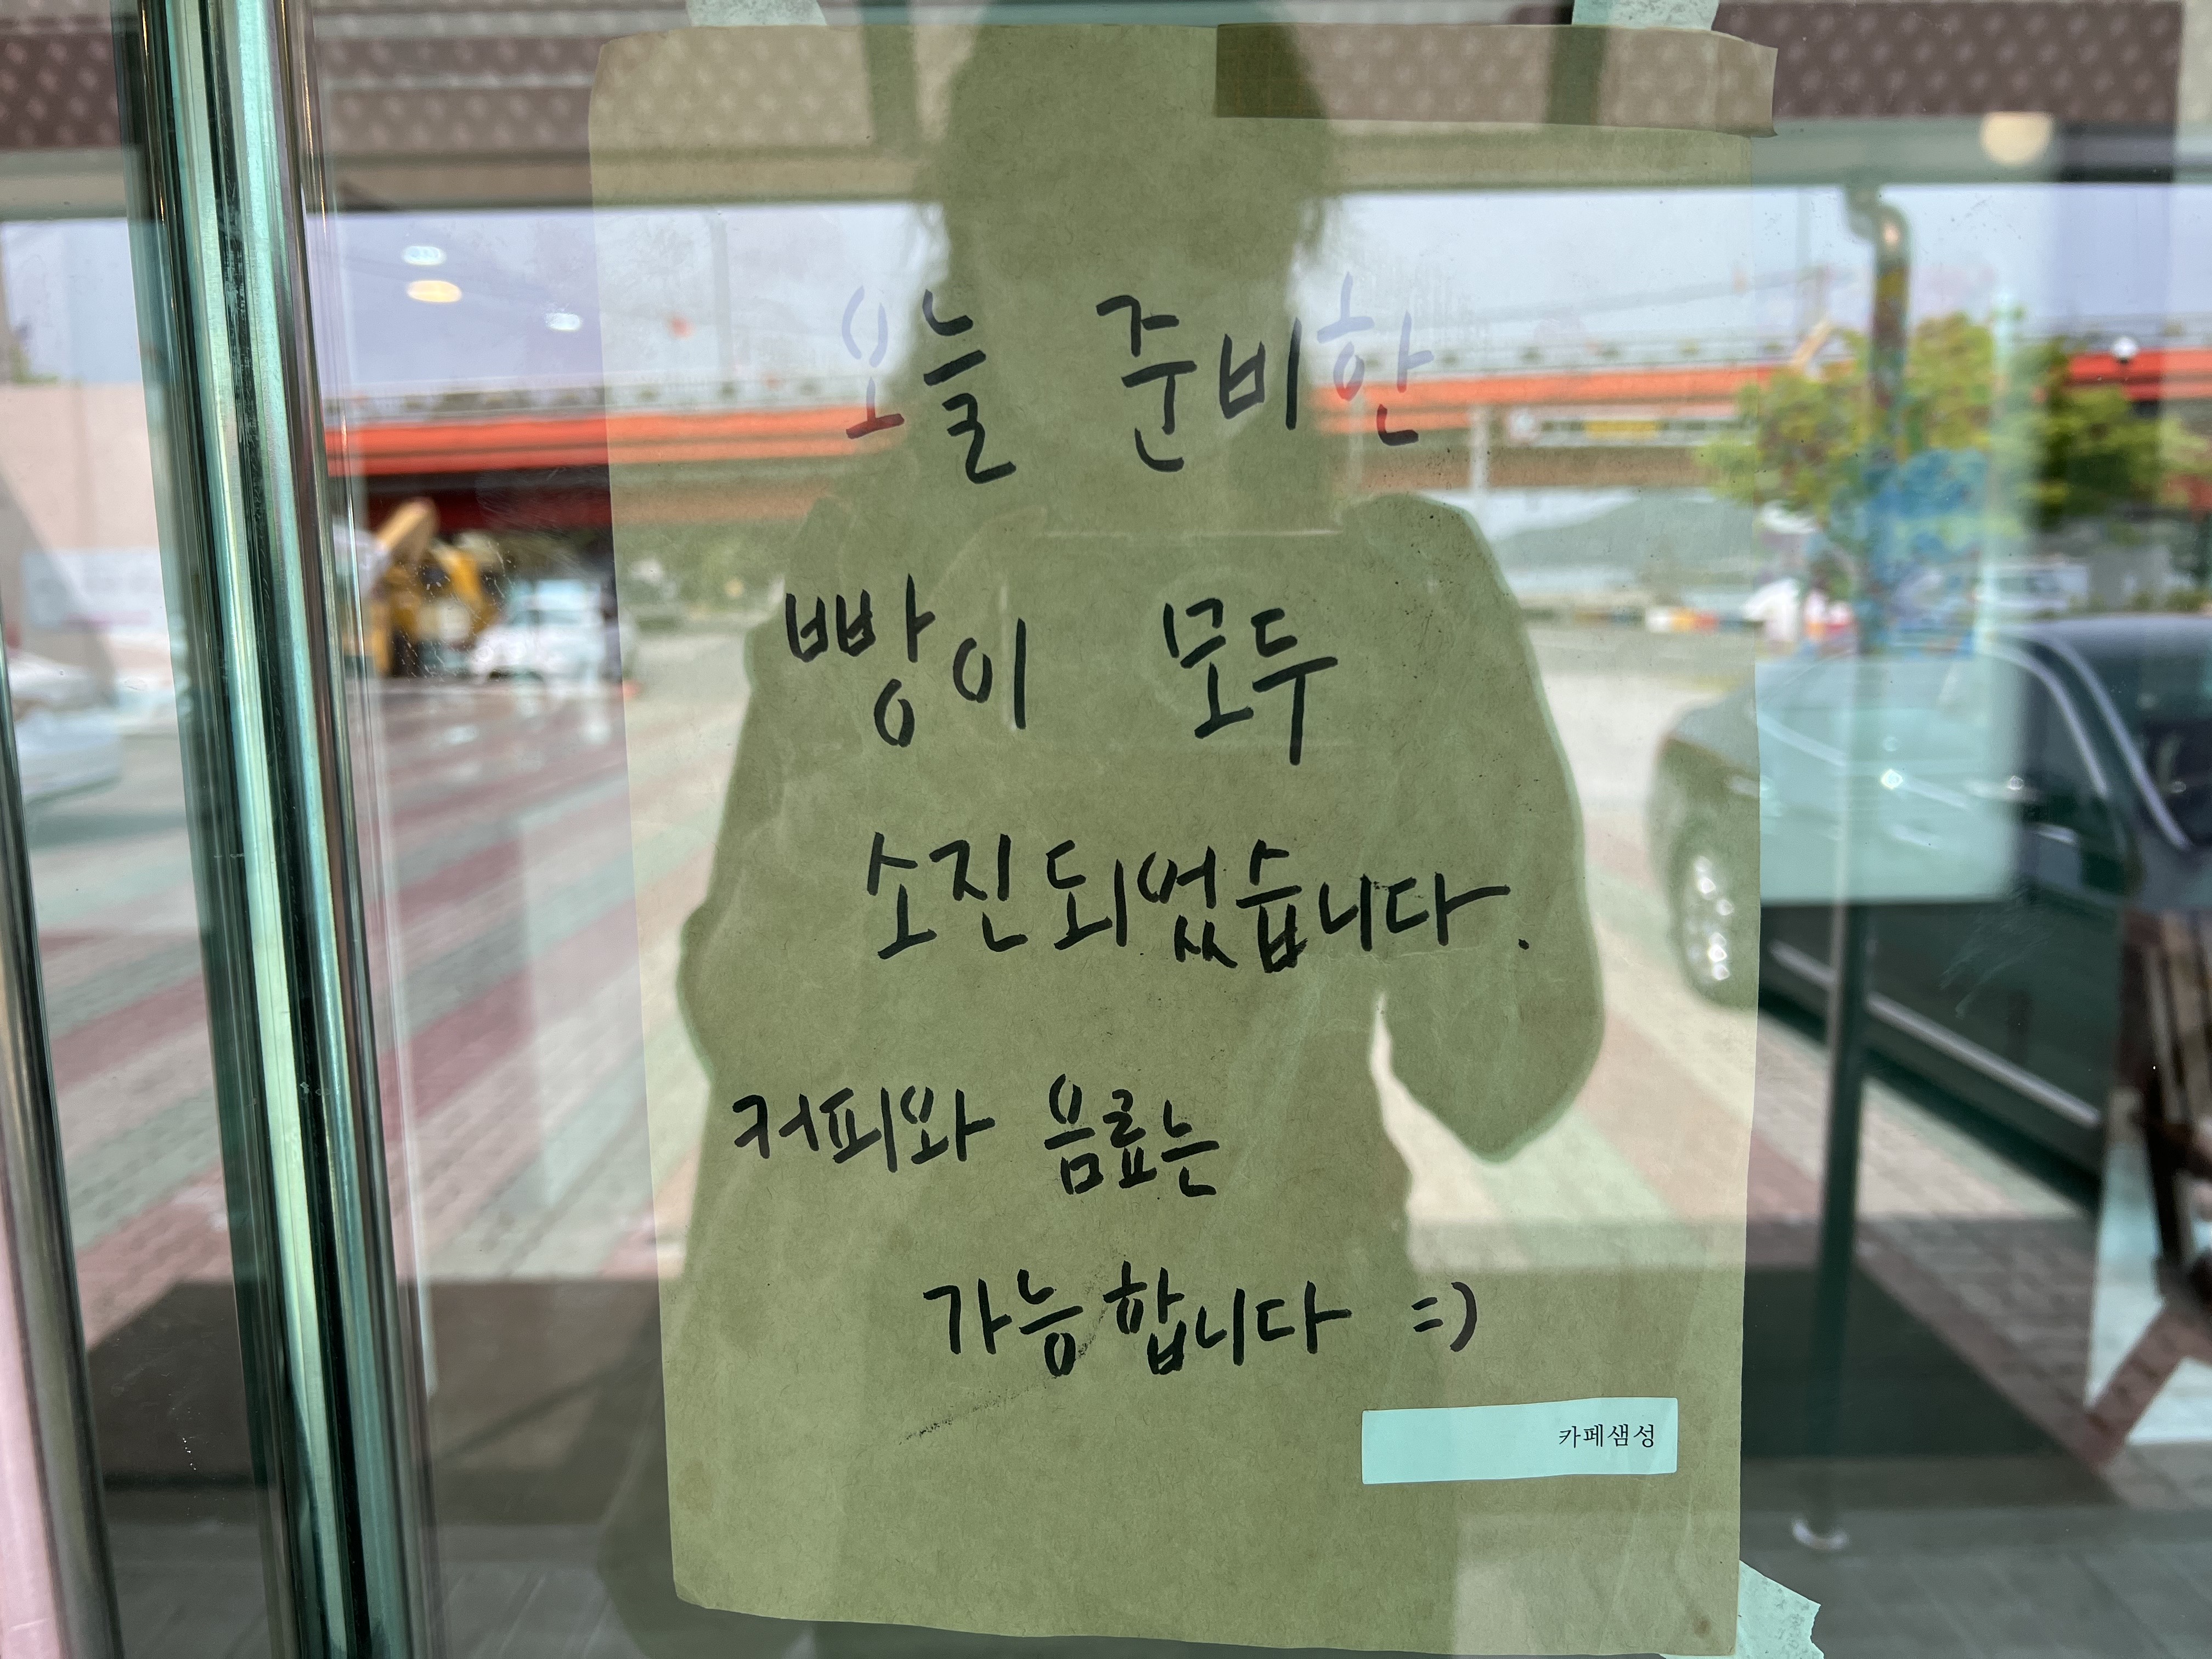 오늘 준비한
빵이 모두
소진되었습니다.
커피와 음료는
가능합니다 =)
카페샘성